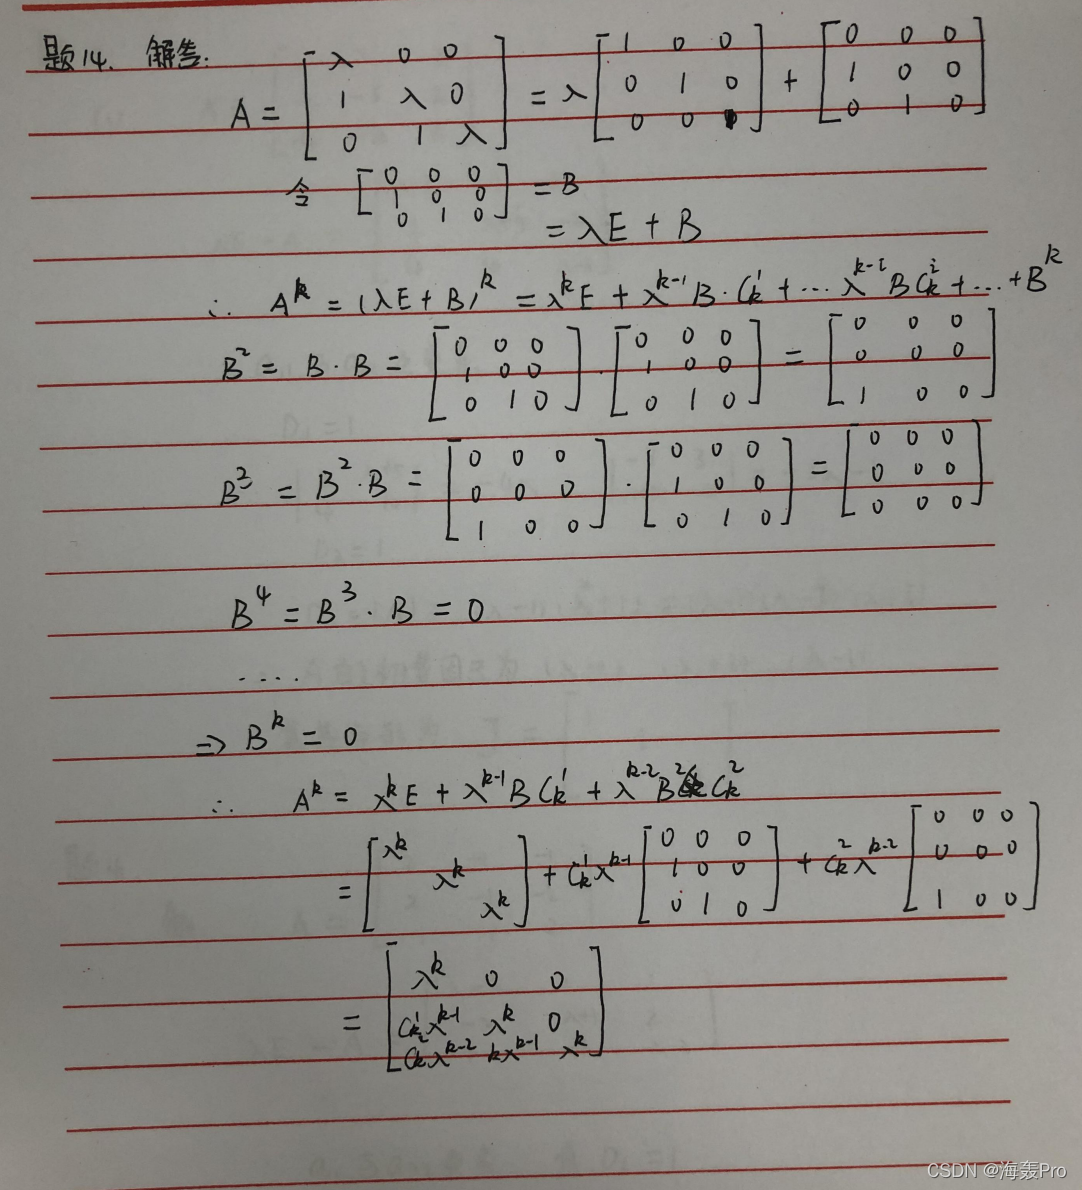 题14. 解答:
A = [λ 0 0; 1 λ 0; 0 1 λ] = λ [1 0 0; 0 1 0; 0 0 1] + [0 0 0; 1 0 0; 0 1 0]
令 [0 0 0; 1 0 0; 0 1 0] = B
= λE + B
∴ A^k = (λE + B)^k = λ^k E + λ^{k-1} B · C_k^1 + ... λ^{k-i} B C_k^i + ... + B^k
B^2 = B · B = [0 0 0; 1 0 0; 0 1 0] · [0 0 0; 1 0 0; 0 1 0] = [0 0 0; 0 0 0; 1 0 0]
B^3 = B^2 · B = [0 0 0; 0 0 0; 1 0 0] · [0 0 0; 1 0 0; 0 1 0] = [0 0 0; 0 0 0; 0 0 0]
B^4 = B^3 · B = 0
....
⇒ B^k = 0
∴ A^k = λ^k E + λ^{k-1} B C_k^1 + λ^{k-2} B^2 C_k^2
= [λ^k; λ^k; λ^k] + C_k^1 λ^{k-1} [0 0 0; 1 0 0; 0 1 0] + C_k^2 λ^{k-2} [0 0 0; 0 0 0; 1 0 0]
= [λ^k 0 0; C_k^1 λ^{k-1} λ^k 0; C_k^2 λ^{k-2} kλ^{k-1} λ^k]
CSDN @海轰Pro